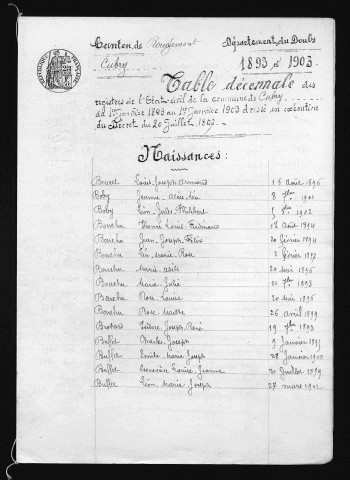 Canton de Rougemont
Département du Doubs
Cubry
1893 à 1903
RÉPUBLIQUE FRANÇAISE
Table décennale des
registres de l'Etat-civil de la commune de Cubry
du 1er Janvier 1893 au 1er Janvier 1903 dressé en exécution
du Décret du 20 Juillet 1807.
Naissances :
Louis Joseph Armand 16 Août 1896
Boby Jeanne Aline Léa 8 1901
Boby Léon Jules Philibert 1902
Bouchu Henri Louis 17 Août 1894
Bouchu Jean Joseph Félix 20 février 1894
Bouchu Léa Marie Rose 2 février 1897
Bouchu Marie Adèle 20 mai 1896
Bouchu Marie Julie 21 7bre 1893
Bouchu Rose Louise 20 mai 1896
Bouchu Rose 26 avril 1899
Joseph René 19 7bre 1893
Buffet Charles Joseph 9 Janvier
Buffet Emile Marie Joseph 28 Janvier 1900
Buffet Geneviève Louise Jeanne 30 Juillet 1899
Buffet Léon Marie Joseph 27 mars 1902